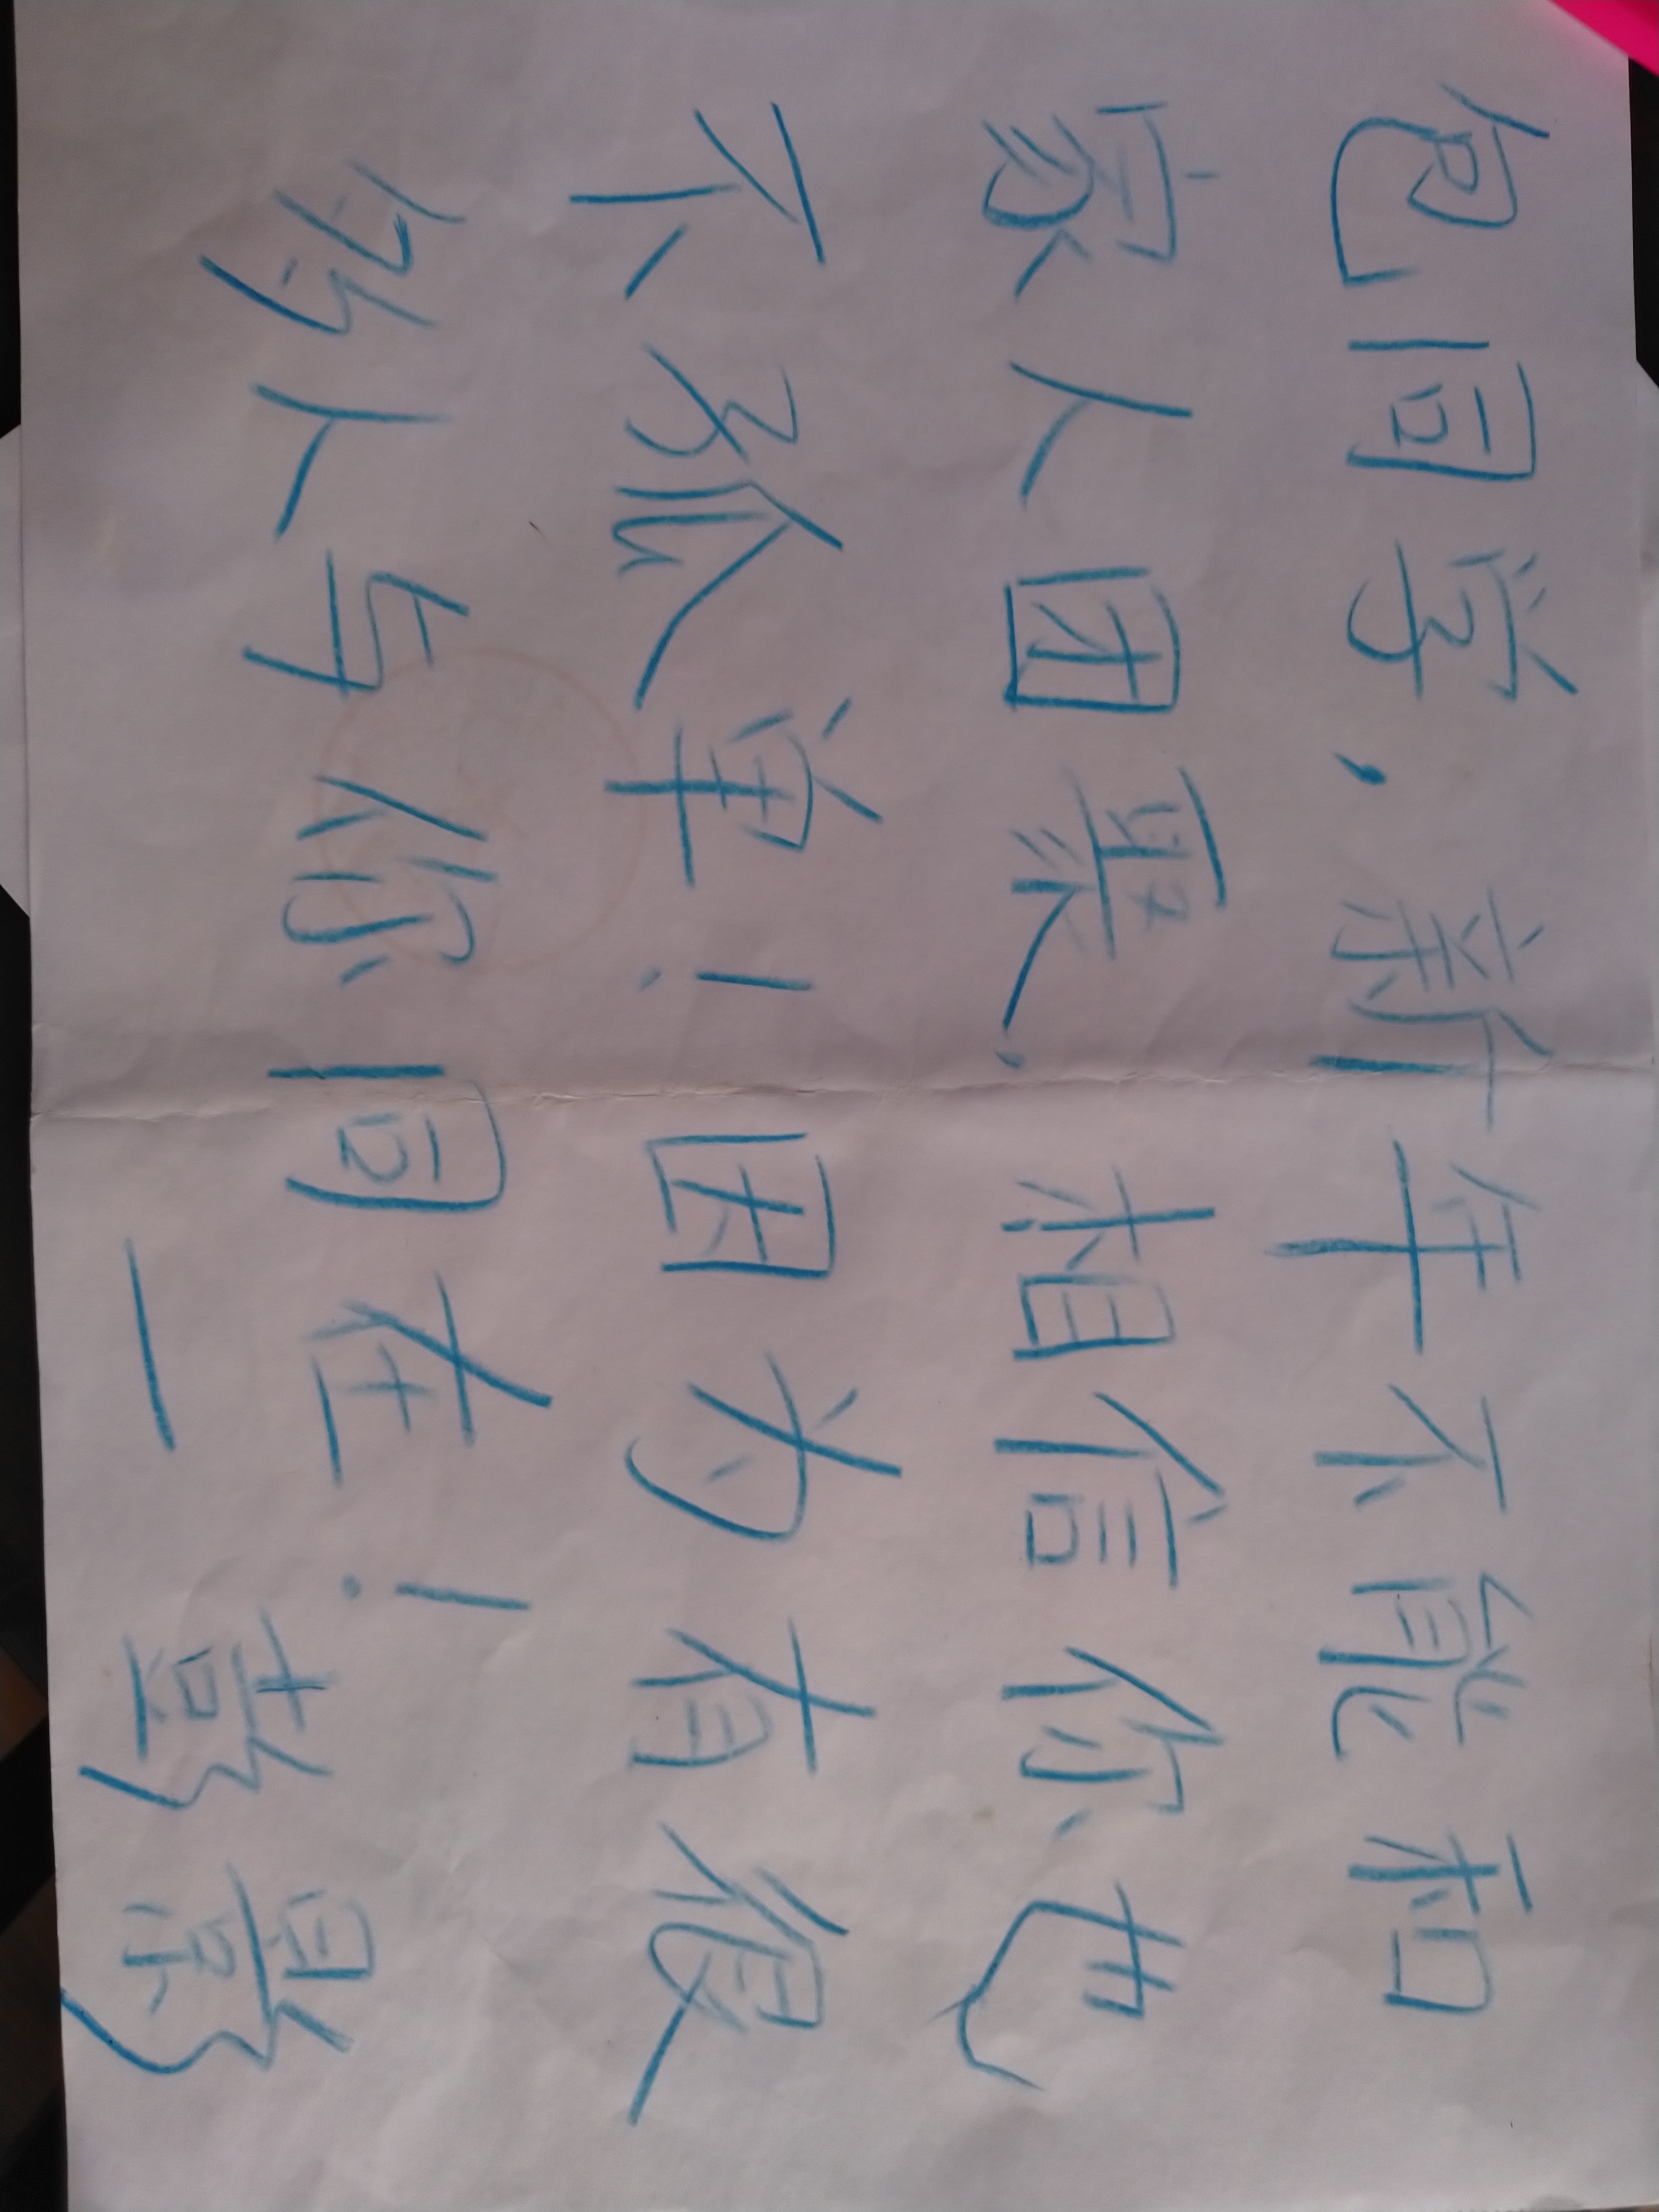 包同学，新年不能和
家人团聚，相信你也
不孤单！因为有很
多人与你同在！
一彭影